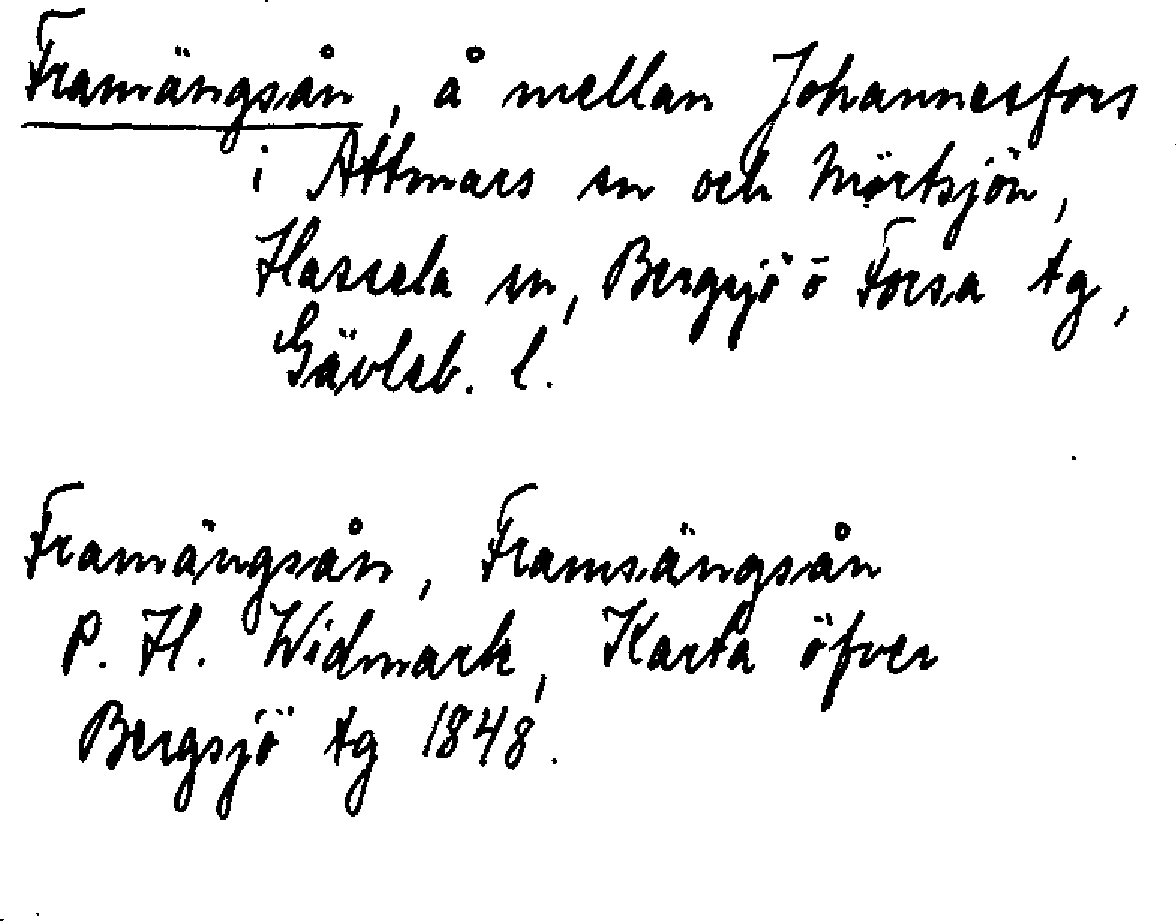 Framängsån, å mellan Johannesfors
i Attmars sn och Mörtsjön,
Hassela sn, Bergsjö o Forsa tg,
Gävleb. l.
Framängsån, Framsängsån
P. H. Widmark, Karta öfver
Bergsjö tg 1848.